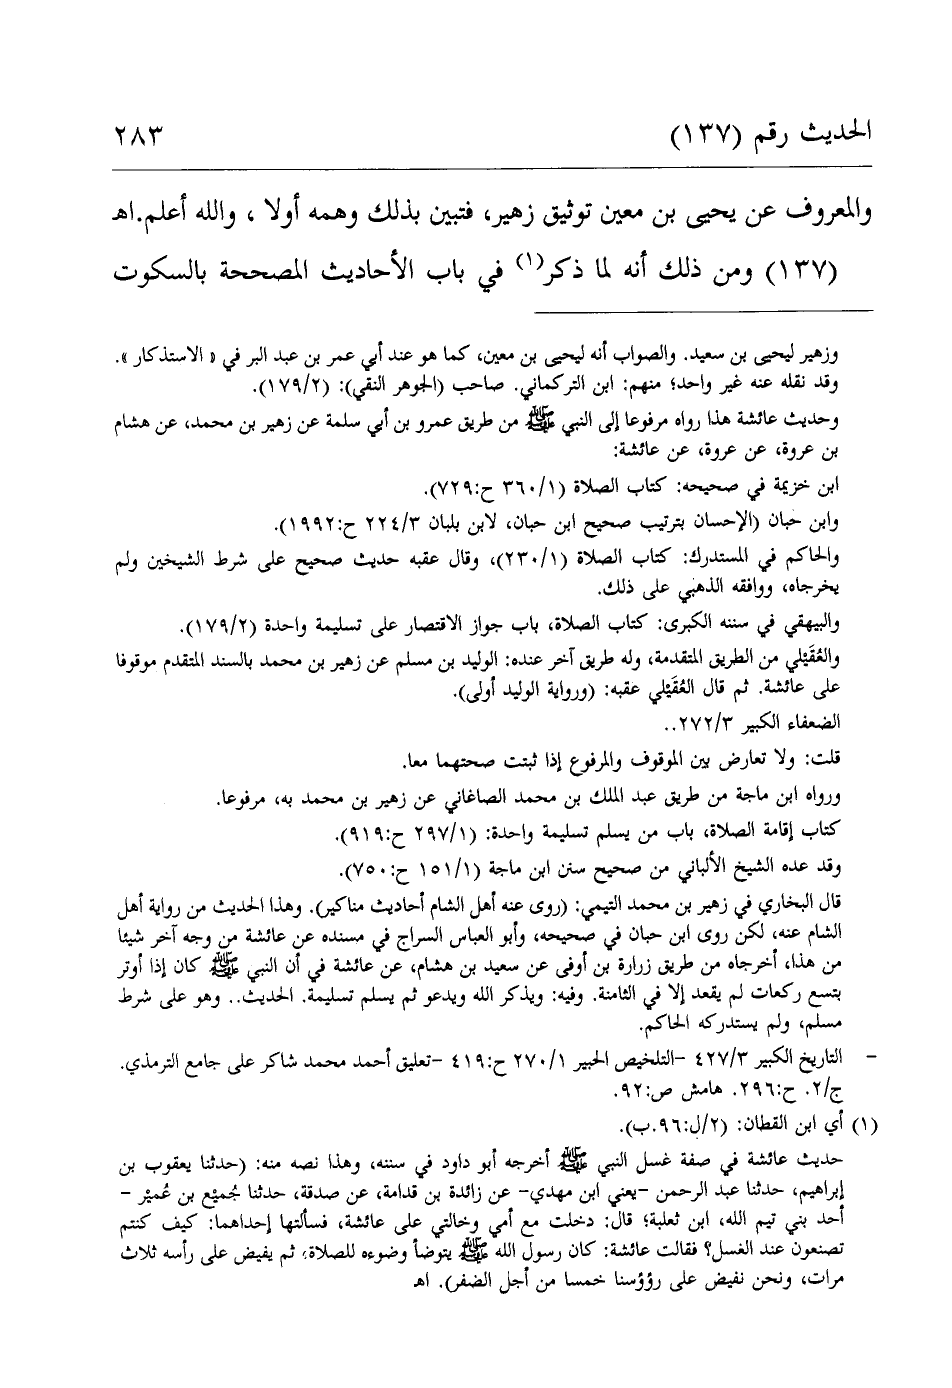 الحديث رقم (١٣٧) ٢٨٣
والمعروف عن يحيى بن معين توثيق زهير، فتبين بذلك وهمه أولا ، والله أعلم.اهـ
(١٣٧) ومن ذلك أنه لما ذكر(١) في باب الأحاديث المصححة بالسكوت
وزهير ليحيى بن سعيد. والصواب أنه ليحيى بن معين، كما هو عند أبي عمر بن عبد البر في « الاستذكار ».
وقد نقله عنه غير واحد؛ منهم: ابن التركماني. صاحب (الجوهر النقي): (١٧٩/٢).
وحديث عائشة هذا رواه مرفوعا إلى النبي ﷺ من طريق عمرو بن أبي سلمة عن زهير بن محمد، عن هشام
بن عروة، عن عروة، عن عائشة:
ابن خزيمة في صحيحه: كتاب الصلاة (٣٦٠/١ ح:٧٢٩).
وابن حبان (الإحسان بترتيب صحيح ابن حبان، لابن بلبان ٢٢٤/٣ ح:١٩٩٢).
والحاكم في المستدرك: كتاب الصلاة (٢٣٠/١)، وقال عقبه حديث صحيح على شرط الشيخين ولم
يخرجاه، ووافقه الذهبي على ذلك.
والبيهقي في سننه الكبرى: كتاب الصلاة، باب جواز الاقتصار على تسليمة واحدة (١٧٩/٢).
والعُقَيْلي من الطريق المتقدمة، وله طريق آخر عنده: الوليد بن مسلم عن زهير بن محمد بالسند المتقدم موقوفا
على عائشة. ثم قال العُقَيْلي عقبه: (ورواية الوليد أولى).
الضعفاء الكبير ٢٧٢/٣..
قلت: ولا تعارض بين الموقوف والمرفوع إذا ثبتت صحتهما معا.
ورواه ابن ماجة من طريق عبد الملك بن محمد الصاغاني عن زهير بن محمد به، مرفوعا.
كتاب إقامة الصلاة، باب من يسلم تسليمة واحدة: (٢٩٧/١ ح:٩١٩).
وقد عده الشيخ الألباني من صحيح سنن ابن ماجة (١٥١/١ ح:٧٥٠).
قال البخاري في زهير بن محمد التيمي: (روى عنه أهل الشام أحاديث مناكير). وهذا الحديث من رواية أهل
الشام عنه، لكن روى ابن حبان في صحيحه، وأبو العباس السراج في مسنده عن عائشة من وجه آخر شيئا
من هذا، أخرجاه من طريق زرارة بن أوفى عن سعيد بن هشام، عن عائشة في أن النبي ﷺ كان إذا أوتر
بتسع ركعات لم يقعد إلا في الثامنة. وفيه: ويذكر الله ويدعو ثم يسلم تسليمة. الحديث.. وهو على شرط
مسلم، ولم يستدركه الحاكم.
- التاريخ الكبير ٤٢٧/٣ -التلخيص الحبير ٢٧٠/١ ح:٤١٩ -تعليق أحمد محمد شاكر على جامع الترمذي.
ج/٢. ح:٢٩٦. هامش ص:٩٢.
(١) أي ابن القطان: (٢/ل:٩٦.ب).
حديث عائشة في صفة غسل النبي ﷺ أخرجه أبو داود في سننه، وهذا نصه منه: (حدثنا يعقوب بن
إبراهيم، حدثنا عبد الرحمن -يعني ابن مهدي- عن زائدة بن قدامة، عن صدقة، حدثنا جُميْع بن عُميْر -
أحد بني تيم الله، ابن ثعلبة؛ قال: دخلت مع أمي وخالتي على عائشة، فسألتها إحداهما: كيف كنتم
تصنعون عند الغسل؟ فقالت عائشة: كان رسول الله ﷺ يتوضأ وضوءه للصلاة، ثم يفيض على رأسه ثلاث
مرات، ونحن نفيض على رؤوسنا خمسا من أجل الضفر). اهـ